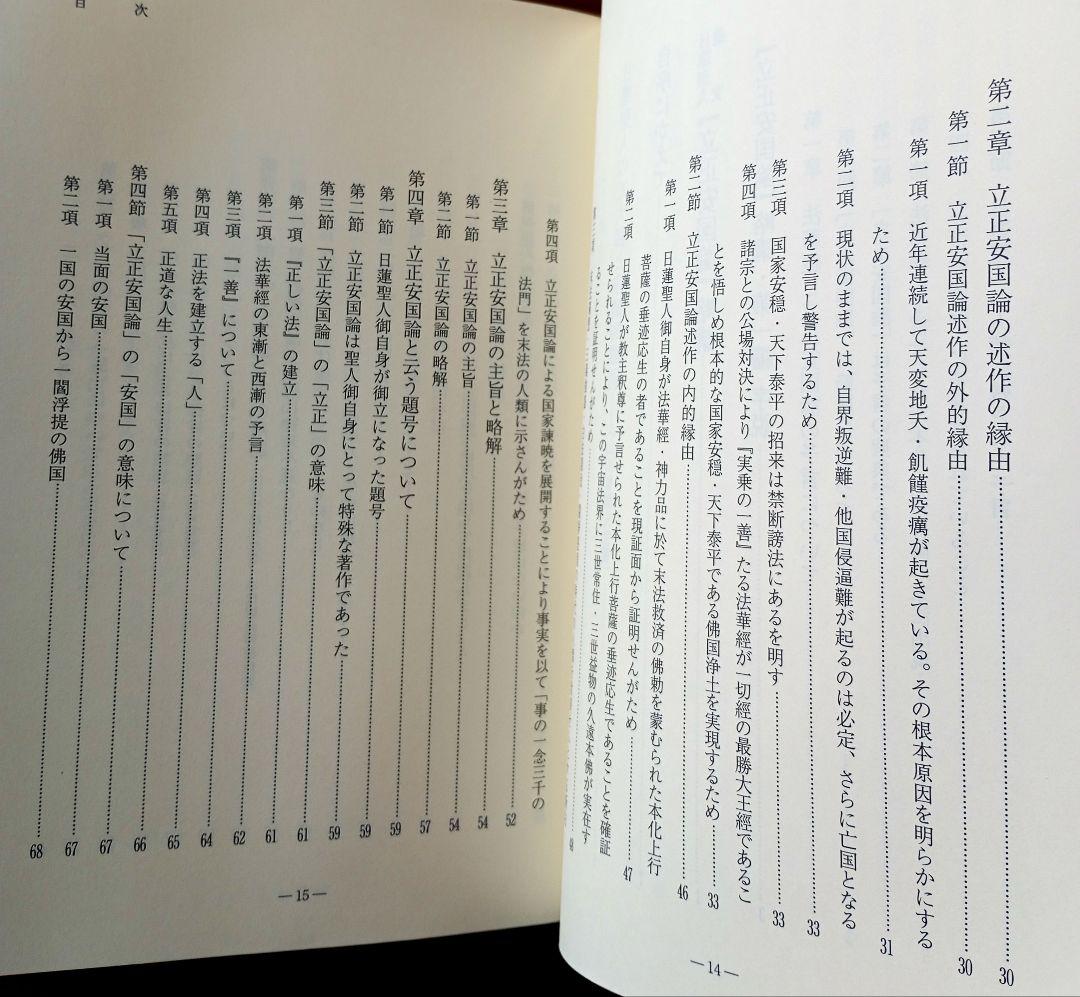 第二章　立正安国論の述作の縁由……30
第一節　立正安国論述作の外的縁由……30
第一項　近年連続して天変地夭・飢饉疫癘が起きている。その根本原因を明らかにする
ため……31
第二項　現状のままでは、自界叛逆難・他国侵逼難が起るのは必定、さらに亡国となる
を予言し警告するため……33
第三項　国家安穏・天下泰平の招来は禁断謗法にあるを明す……33
第四項　諸宗との公場対決により『実乗の一善』たる法華經が一切經の最勝大王經であるこ
とを悟しめ根本的な国家安穏・天下泰平である佛国浄土を実現するため……33
第二節　立正安国論述作の内的縁由……46
第一項　日蓮聖人御自身が法華經・神力品に於て末法救済の佛勅を蒙むられた本化上行
菩薩の垂迹応生の者であることを現証面から証明せんがため……47
第二項　日蓮聖人が教主釈尊に予言せられた本化上行菩薩の垂迹応生であることを確証
せられることにより、この宇宙法界に三世常住・三世益物の久遠本佛が実在す
ることを証明せんがため
—14—
目次
第四項　立正安国論による国家諫暁を展開することにより事実を以て「事の一念三千の
法門」を末法の人類に示さんがため……52
第三章　立正安国論の主旨と略解……54
第一節　立正安国論の主旨……54
第二節　立正安国論の略解……57
第四章　立正安国論と云う題号について……59
第一節　日蓮聖人御自身が御立になった題号……59
第二節　立正安国論は聖人御自身にとって特殊な著作であった……59
第三節　「立正安国論」の「立正」の意味……61
第一項　『正しい法』の建立……61
第二項　法華經の東漸と西漸の予言……62
第三項　『一善』について……64
第四項　正法を建立する「人」……65
第五項　正道な人生……66
第四節　「立正安国論」の「安国」の意味について……67
第一項　当面の安国……67
第二項　一国の安国から一閻浮提の佛国……68
—15—